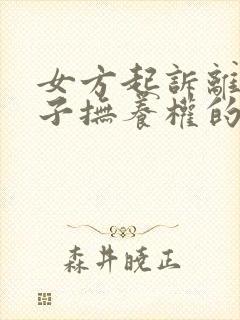 女方起訴離
子撫養權的
森井暁正